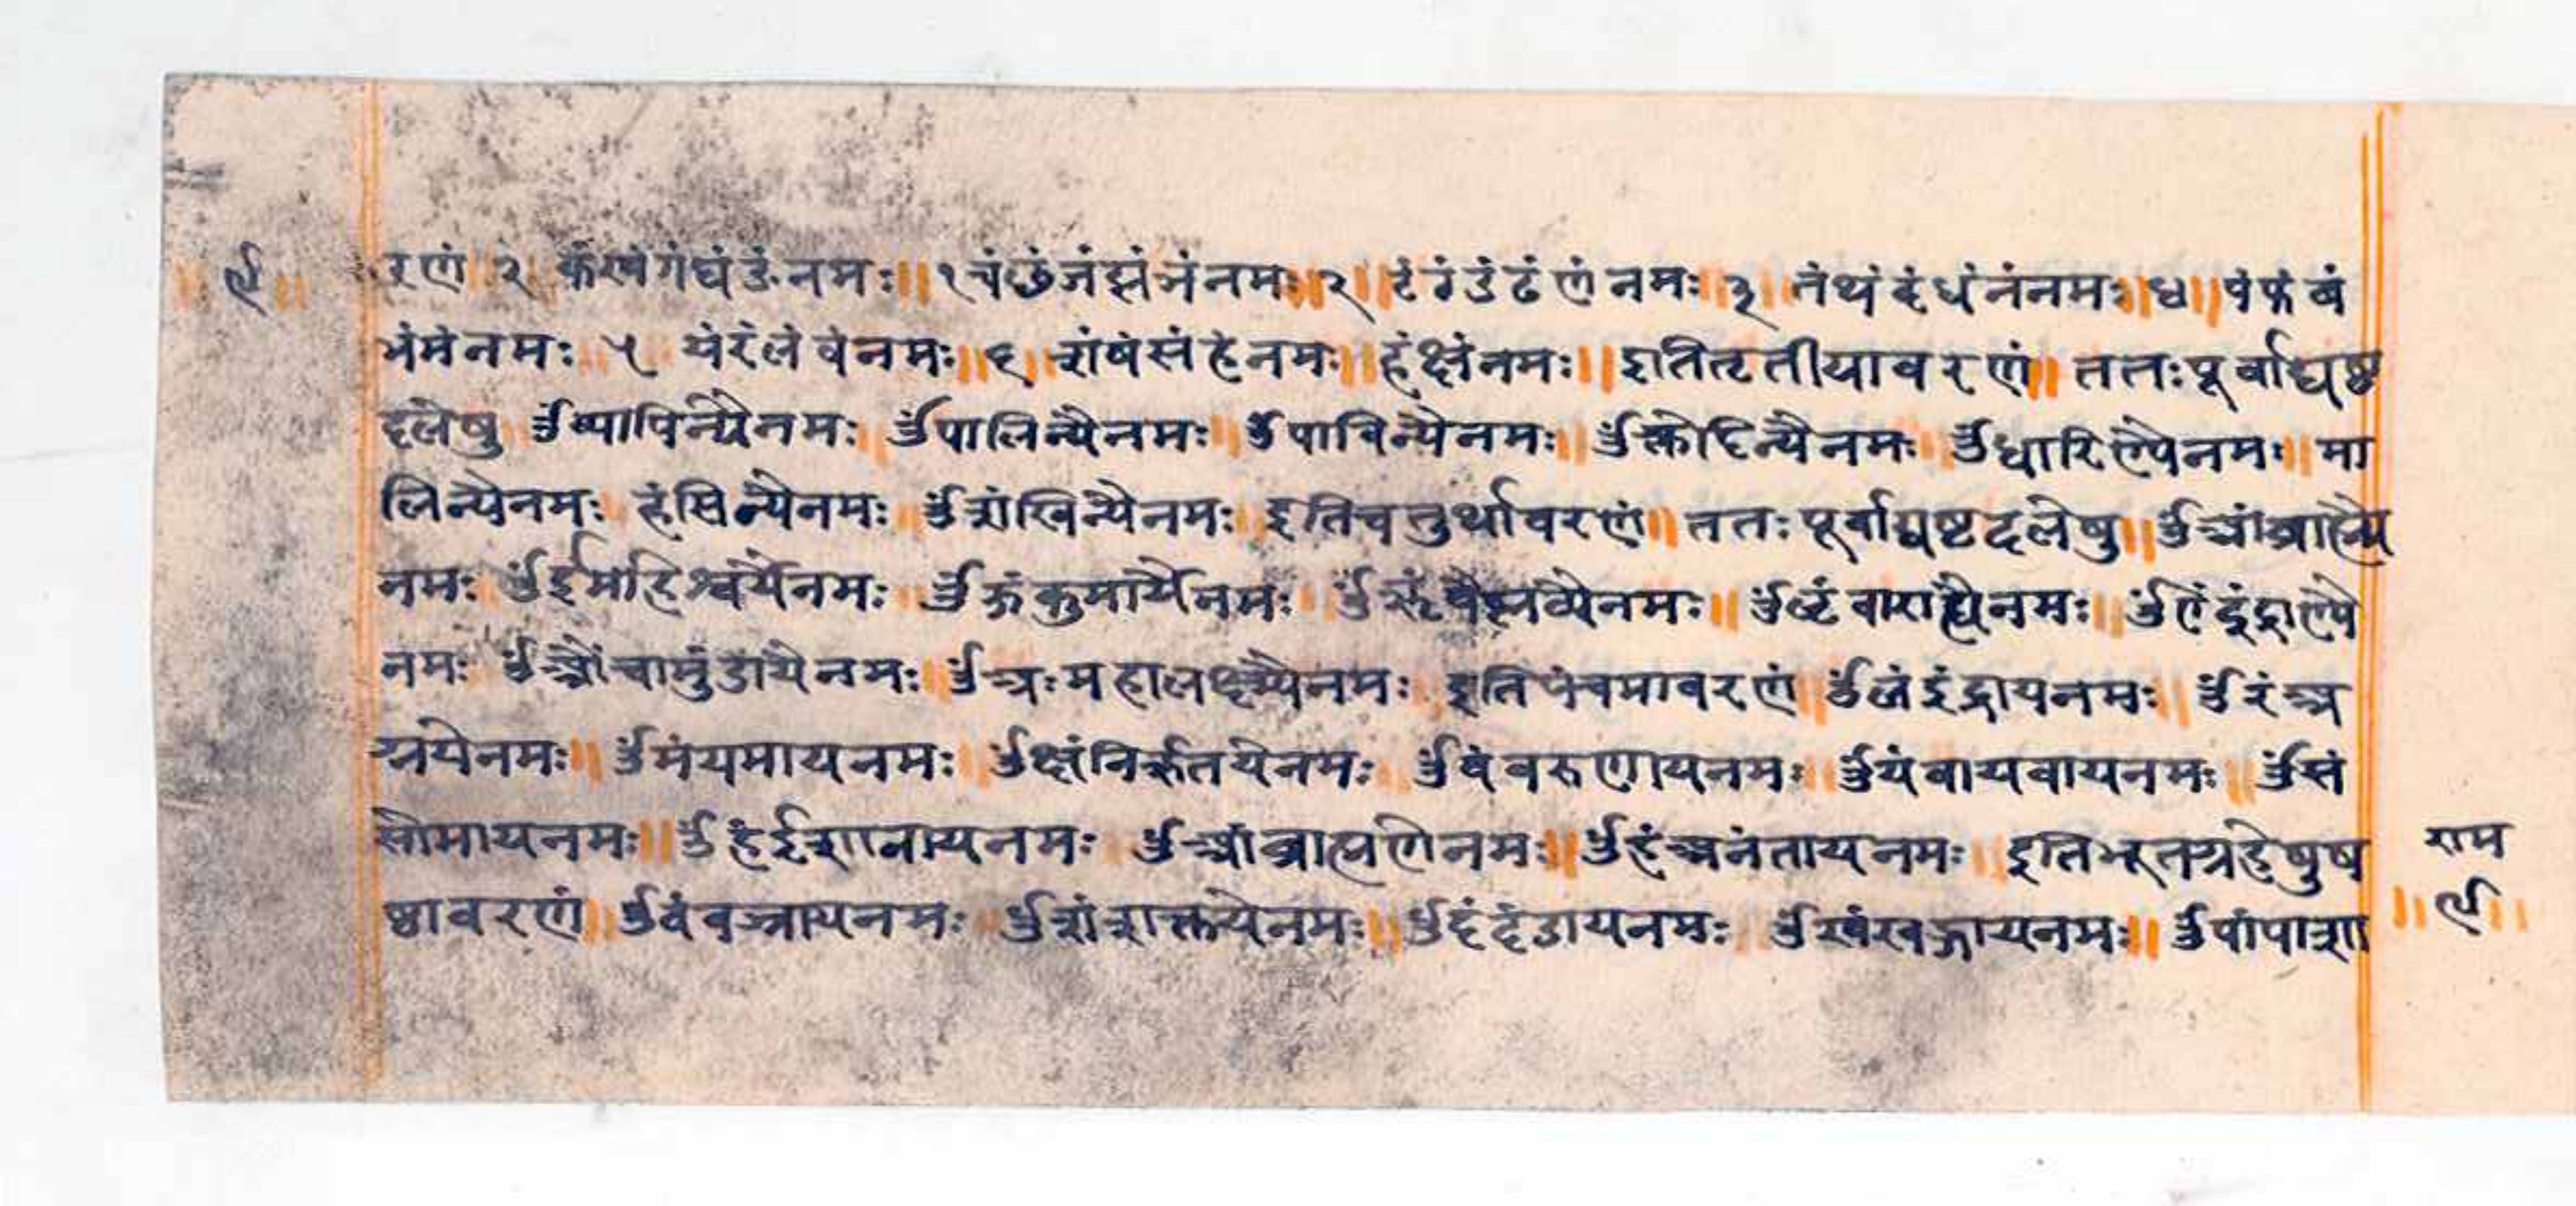 ॥ ९ ॥
रणं २ कंखंगंघंङंनमः ॥ १ चंछंजंझंञंनमः २ ॥ टंठंडंढंणंनमः ३ तंथंदंधंनंनमः ॥ ४ ॥ पंफंबं
भंमंनमः ५ यंरंलंवंनमः ॥ ६ शंषंसंहंनमः ॥ हंक्षंनमः ॥ इतितृतीयावरणं ॥ ततःपूर्वाद्यष्ठ
दलेषु ॐव्यापिन्यैनमः ॐपालिन्यैनमः ॥ ॐपाविन्यैनमः ॥ ॐक्लेदिन्यैनमः ॐधारिण्यैनमः ॥ मा
लिन्यैनमः हंसिन्यैनमः ॐशंखिन्यैनमः इतिचतुर्थावरणं ॥ ततःपूर्वाद्यष्टदलेषु ॥ ॐआंब्राह्म्यै
नमः ॐईंमाहेश्वर्यैनमः ॐऊंकुमार्यैनमः ॐॠंवैष्णव्यैनमः ॥ ॐॡंवाराह्यैनमः ॥ ॐऐंइंद्राण्यै
नमः ॐऔंचामुंडायैनमः ॥ ॐअःमहालक्ष्म्यैनमः इतिपंचमावरणं ॐलंइंद्रायनमः ॥ ॐरंअ
ग्नयेनमः ॥ ॐमंयमायनमः ॐक्षंनिर्ऋतयेनमः ॐवंवरुणायनमः ॐयंवायवायनमः ॥ ॐसं
सोमायनमः ॥ ॐहंईशानायनमः ॐआंब्राह्मणेनमः ॥ ॐहंअनंतायनमः इतिभूतग्रहेषुष
ष्ठावरणं ॥ ॐवंवज्रायनमः ॐशंशक्तयेनमः ॥ ॐदंदंडायनमः ॐखंखड्गायनमः ॥ ॐपांपाशा
राम
॥ ९ ॥